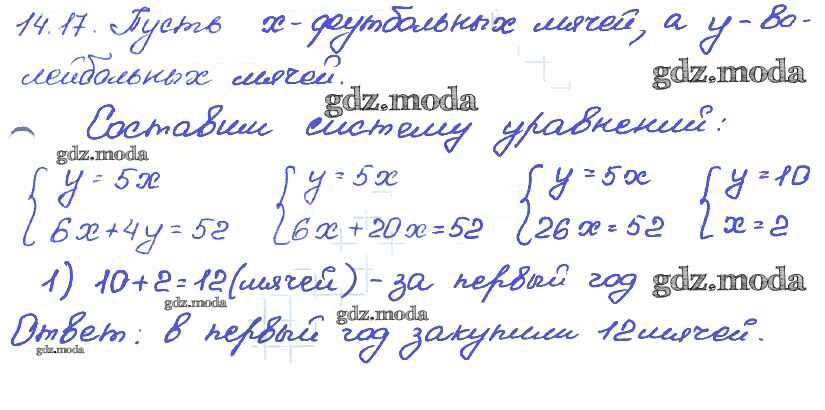 14.17. Пусть x - футбольных мячей, а y - во-
лейбольных мячей.
gdz.moda
gdz.moda
Составим систему уравнений:
gdz.moda
{ y = 5x { y = 5x { y = 5x { y = 10
{ 6x + 4y = 52 { 6x + 20x = 52 { 26x = 52 { x = 2
1) 10 + 2 = 12 (мячей) - за первый год
gdz.moda
gdz.moda
gdz.moda
Ответ: в первый год закупили 12 мячей.
gdz.moda